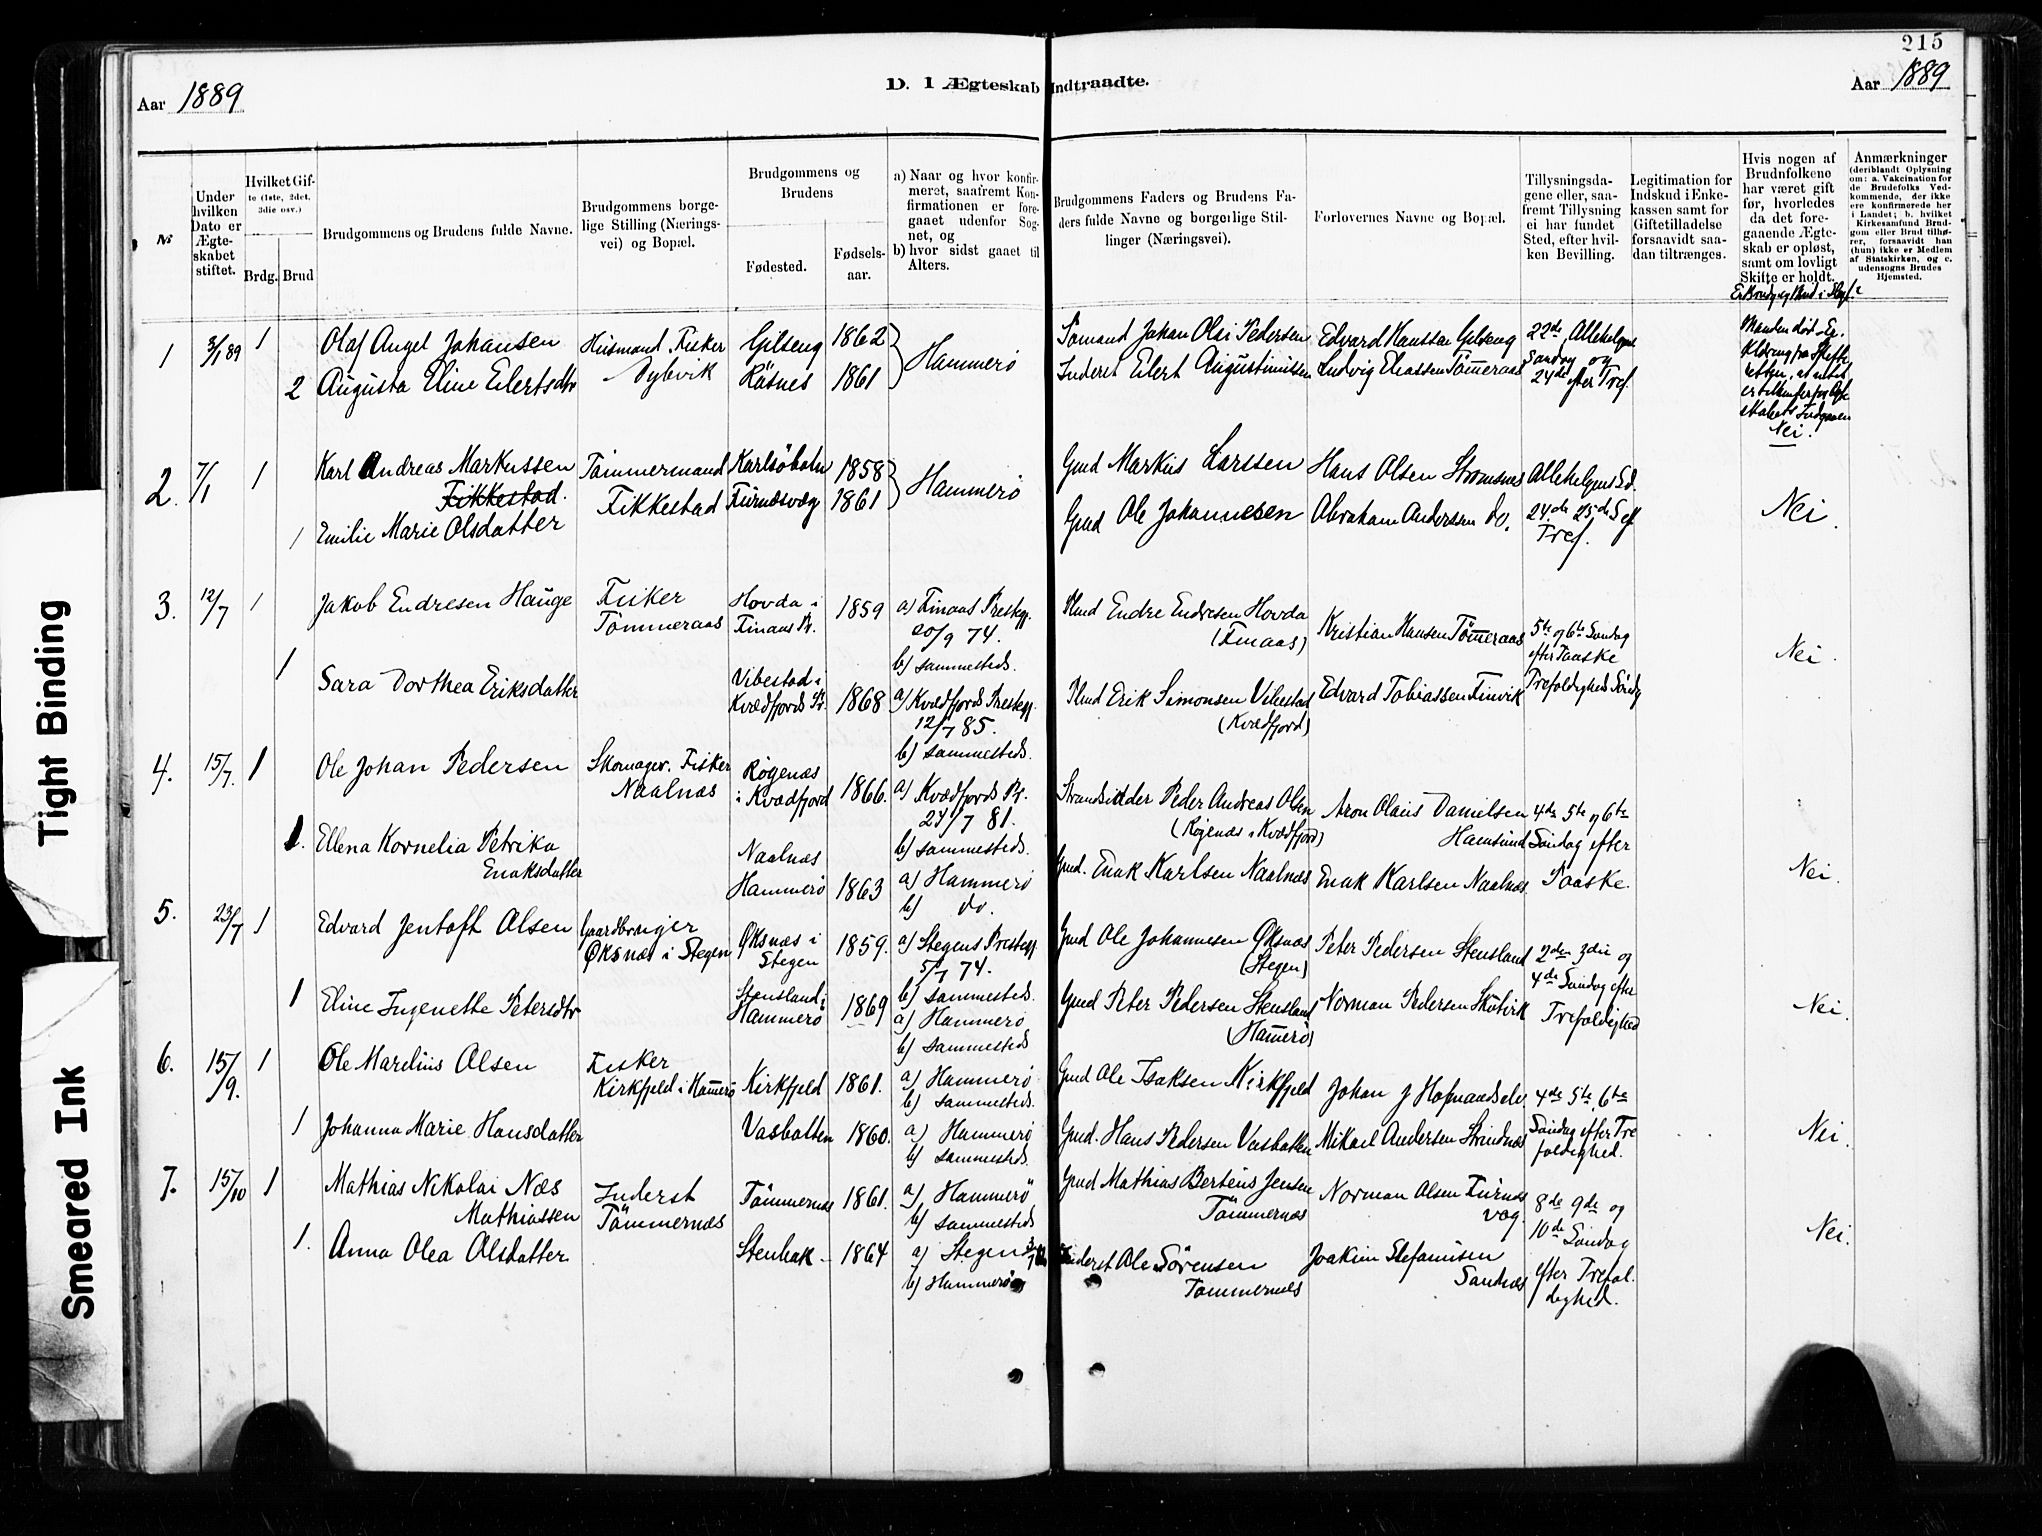 215
Aar 1889
D. 1 Ægteskab Indtraadte.
Aar 1889
Nr.
Under hvilken Dato er Ægteskabet stiftet.
Hvilket Gifte (1ste, 2det, 3die osv.)
Brdg.
Brud
Brudgommens og Brudens fulde Navne.
Brudgommens borgelige Stilling (Næringsvei) og Bopæl.
Brudgommens og Brudens
Fødested.
Fødselsaar.
a) Naar og hvor konfirmeret, saafremt Konfirmationen er foregaaet udenfor Sognet, og
b) hvor sidst gaaet til Alters.
Brudgommens Faders og Brudens Faders fulde Navne og borgerlige Stillinger (Næringsvei).
Forlovernes Navne og Bopæl.
Tillysningsdagene eller, saafremt Tillysning ei har fundet Sted, efter hvilken Bevilling.
Legitimation for Indskud i Enkekassen samt for Giftetilladelse forsaavidt saadan tiltrænges.
Hvis nogen af Brudnfolkene har været gift før, hvorledes da det foregaaende Ægteskab er opløst, samt om lovligt Skifte er holdt.
Anmærkninger
(deriblandt Oplysning om: a. Vakcination for de Brudefolks Vedkommende, der ikke ere konfirmerede her i Landet; b. hvilket Kirkesamfund Brudgom eller Brud tilhører, forsaavidt han (hun) ikke er Medlem af Statskirken, og c. udensogns Brudes Hjemsted.
1 3/1 89 1 Olaf Angel Johansen Husmand, Fisker Gilseng 1862
2 Augusta Eline Eilertsdtr Dybvik Råsnes 1861 Hammerø
Sømand Johan Olai Pedersen Edvard Hanssen Gilseng 22de, Allehelgens
Inderst Eilert Augustinussen Ludvig Eliassen Tømmeraas Søndag og
24de efter Tref.
Manden død
Nei.
2. 7/1 1 Karl Andreas Markussen Tømmermand Karlsöholm 1858
Fikkestad. Fikkestad Furnesvæg 1861 Hammerø
1 Emilie Marie Olsdatter
Gmd Markus Larssen Hans Olsen Strømsnes Allehelgens Sd.
Gmd Ole Johannesen Abraham Anderssen do. 24de 25de S ef
Tref.
Nei.
3. 12/7 1 Jakob Endresen Hauge Fisker Hovda i 1859 a) Finaas Prestegj.
Tømmeraas Finaas Pr. 20/9 74.
b) sammesteds.
1 Sara Dorthea Eriksdatter Vibestad i
Kvædfjords Pr. 1868 a) Kvædfjords Prestegj.
12/7 85.
b) sammesteds.
Gmd Endre Endresen Hovda
(Finaas) Kristian Hansen Tømeraas 5te og 6te Søndag
efter Paaske
Gmd Erik Simonsen Vibestad Edvard Tobiassen Finvik Trefoldigheds Søndg
(Kvædfjord)
Nei.
4. 15/7. 1 Ole Johan Pedersen Skomager. Fisker Røgenæs
Naalnæs i Kvædfjord 1866. a) Kvædfjords Pr.
24/7 81.
b) sammesteds.
1. Ellena Kornelia Petrika Naalnæs
Enoksdatter Hammerø 1863 a) Hammerø
b) do.
Strandsidder Peder Andreas Olsen Aron Olaus Danielsen 4de 5te og 6te
(Røgenæs i Kvædfjord) Hamsund Søndag efter
Gmd. Enok Karlsen Naalnæs Enok Karlsen Naalnæs. Paaske.
Nei.
5. 23/7 1 Edvard Jentoft Olsen Gaardbruger
Øksnæs i Stegen Øksnæs i
Stegen 1859. a) Stegens Prestegj.
5/7 74.
b) sammesteds.
1 Eline Ingenette Petersdtr Stensland i
Hammerø 1869 a) Hammerø
b) sammesteds
Gmd Ole Johannesen Øksnæs
(Stegen) Peter Pedersen Stensland 2den 3die og
4de Søndag efter
Gmd Peter Pedersen Stensland Norman Pedersen Skutvik Trefoldighed
(Hamerø)
Nei.
6. 15/9. 1 Ole Marelius Olsen Fisker
Kirkfjeld i Hamerø Kirkfjeld 1861. a) Hammerø
b) sammesteds.
1 Johanna Marie Hansdatter Vasbotten 1860. a) Hammerø
b) sammesteds
Gmd Ole Isaksen Kirkfjeld Johan J 4de 5te, 6te
Gmd. Hans Pedersen Vasbotten Mikael Andersen Strindnæs Søndag efter Tre
foldighed.
Nei.
7. 15/10 1 Mathias Nikolai Næs Inderst
Mathiassen Tømmernæs Tømmernæs 1861. a) Hammerø
b) sammesteds
1. Anna Olea Olsdatter Stenbak 1864 a) Stegen
b) Hammerø
Gmd Mathias Bertéus Jensen Norman Olsen Furnes
Tømmernæs vog. 8de 9de og
10de Søndag
Inderst Ole Sørensen Joakim Stefanusen efter Trefol
Tømmernes Sandnæs dighed.
Nei.
Tight Binding
Smeared Ink